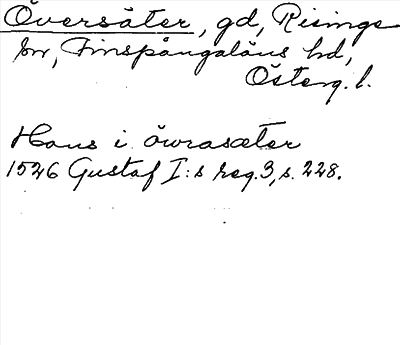 Översäter, gd, Risinge
sn, Finspångaläns hd,
Österg. l.
Hans i öwrasæter
1526 Gustaf I:s reg. 3, s. 228.